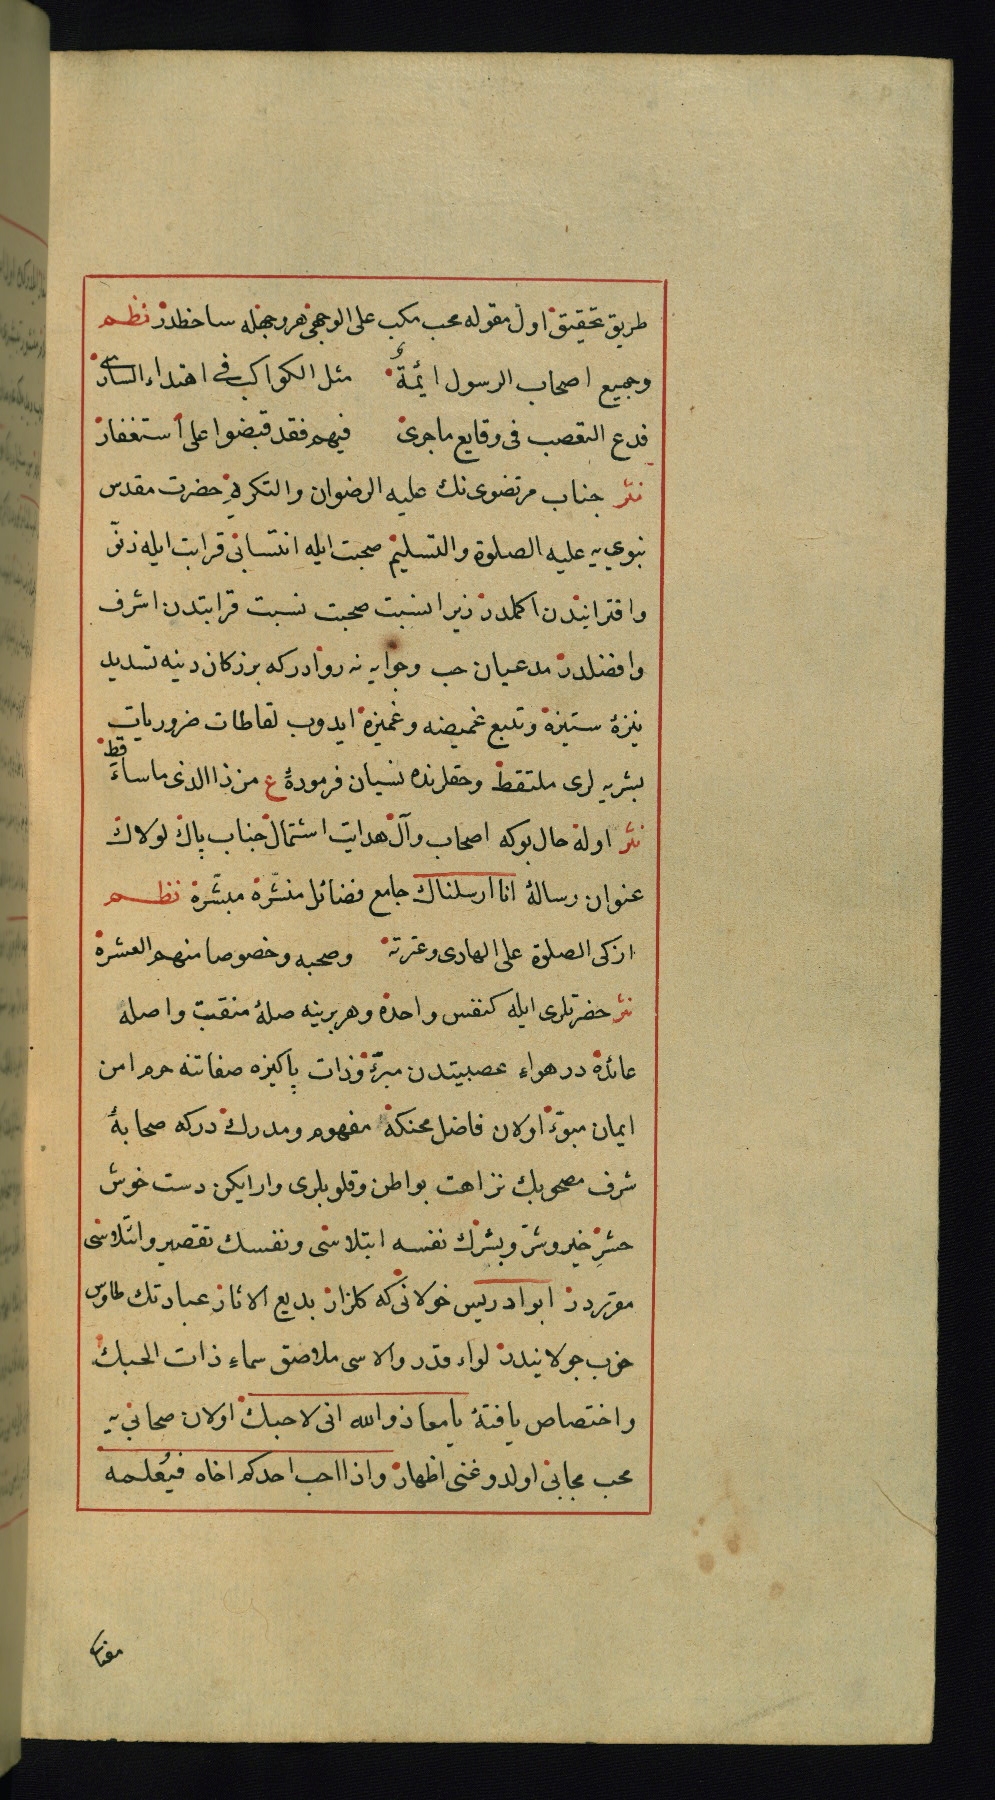 طریق تحقیق اول مقوله محب مکب علی الوجهی هر وجهله ساخطدر نظم
وجمیع اصحاب الرسول ائمةٌ مثل الکواکب فی اهتداء الساری
فدع التعصب فی وقایع ماجری فیهم فقد قبضوا علی استغفار
نثر جناب مرتضوی نك علیه الرضوان والتکریم حضرت مقدس
نبوی یه علیه الصلوة والتسلیم صحبت ایله انتسابی قرابت ایله
واقترانیندن اکملدر زیرا نسبت صحبت نسبت قرابتدن اشرف
وافضلدر مدعیان حب وجوایه نه روادر که بزرکان دینه تسدید
نیزهٔ ستیزه وتتبع غمیضه وغمیزه ایدوب لقاطات ضروریات
بشریه لری ملتقط وحقلرنده نسیان فرمودهٔ ع من ذا الذی ماساءَ قط
نثر اوله حال بوکه اصحاب وآل هدایت اشتمال جناب پاك لولاك
عنوان رسالهٔ انا ارسلناك جامع فضائل منشّره مبشّره نظم
ازکی الصلوة علی الهادی وعترته وصحبه وخصوصا منهم العشره
نثر حضرتلری ایله کنفس واحده وهر برینه صلهٔ منقبت واصله
عائده در هواء عصبیتدن مبرّء وذات پاکیزه صفاتنه حرم امن
ایمان مبوّء اولان فاضل محنکه مفهوم ومدرك درکه صحابهٔ
شرف مصحوبك نزاهت بواطن وقلوبلری وار ایکن دست خوش
حشرِ خیر وشرّ وبشرك نفسه ابتلاسی ونفسك تقصیر وابتلاسی
مقرّردر ابو ادریس خولانی که کلزار بدیع الاثار عبادتك طاوس
خوب جولانیدر لواء قدر والاسی ملاصق سماءِ ذات الحبك
واختصاص یافتهٔ یا معاذ والله انی لاحبك اولان صحابی یه
محب مجابی اولدوغنی اظهار واذا احب احدکم اخاه فیُعلمه